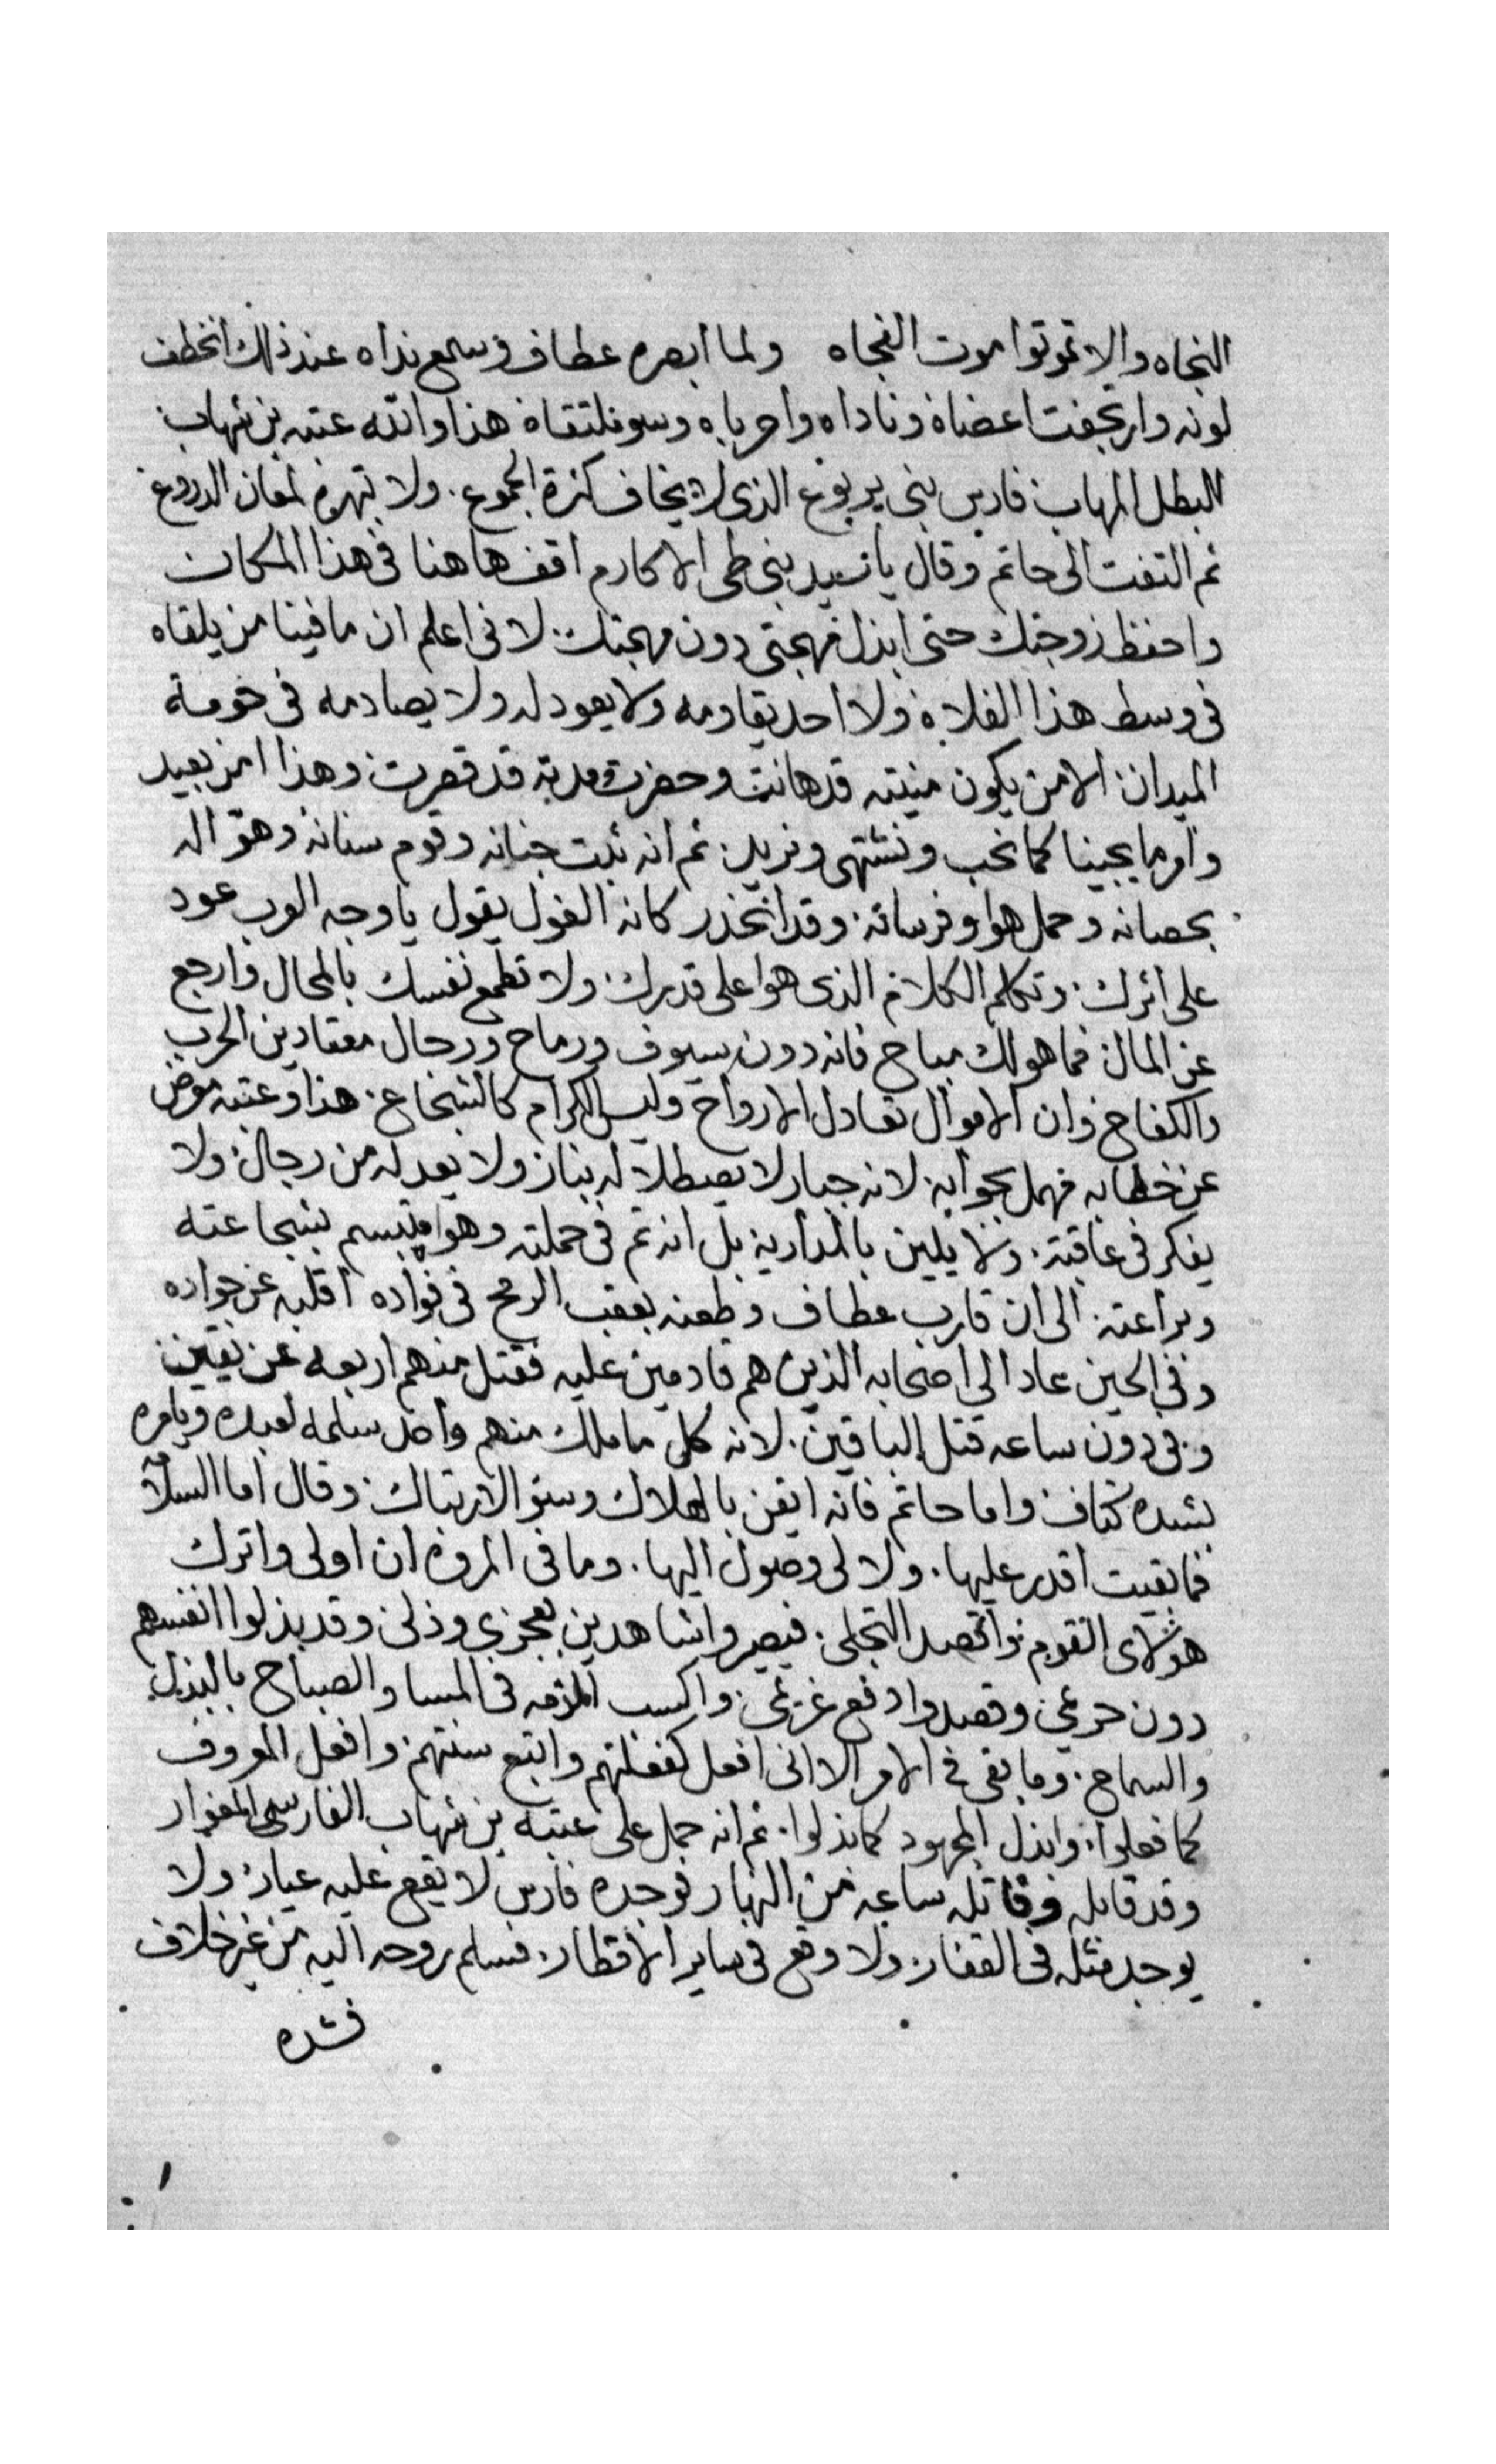 النجاه والا تموتوا موت الفجاه ولما ابصره عطاف وسمع نداه عند ذلك انخطف
لونه وارتجفت اعضاه وناداه واحرباه وسو ملتقاه هذا والله عتبه بن شهاب
البطل المهاب فارس بني يربوع الذي لا يخاف كثرة الجموع. ولا تهره لمعان الدروع
ثم التفت الى حاتم وقال يا سيد بني طي الاكارم اقف هاهنا في هذا المكان
واحفظ زوجتك حتى ابذل مهجتي دون مهجتك. لاني اعلم ان ما فينا من يلقاه
في وسط هذا الفلاه ولا احد يقاومه ولا يعود له ولا يصادمه في حومة
الميدان الا من يكون منيته قد هانت وحضرت مدته قد قصرت وهذا امر بعيد
وامر ما يجينا كما نحب ونشتهي ونريد. ثم انه ثبت جنانه وقوم سنانه وهو اله
بحصانه وحمل هوا وفرسانه. وقد انحدر كانه الغول يقول يا وجه العرب عود
على اثرك. وتكلم الكلام الذي هوا على قدرك ولا تطمع نفسك بالمحال وارجع
عن المال فما هو لك مباح فانه دون سيوف ورماح ورجال معتادين الحرب
والكفاح وان الاموال تعادل الارواح وليس الكرام كالشجاع. هذا وعتبه معرض
عن خطابه مهمل بجوابه لانه جبار لا يصطلا له بنار ولا يعد له من رجال ولا
يفكر في عاقبة. ولا يلين بالمداريه بل انه تم في حملته وهو مبتسم بشجاعته
وبراعته الى ان قارب عطاف وطعنه بعقب الرمح في فواده اقلبه عن جواده
وفي الحين عاد الى اصحابه الذين هم قادمين عليه فقتل منهم اربعه عن يقين
وفي دون ساعه قتل الباقين. لانه كل ما ملك منهم واحد سلمه لعبده ويامره
بشده كتاف واما حاتم فانه ايقن بالهلاك وسو الارتباك وقال اما السلامه
فما بقيت اقدر عليها. ولا لي وصول اليها. وما في المروه ان اولي واترك
هولاى القوم واقصد التخلي. فيصيروا شاهدين بعجزي وذلي وقد بذلوا انفسهم
دون حرمي وقصدوا دفع غرمي. واكسب المذمه في المسا والصباح بالبذل
والسماح. وما بقى في الامر الا انى افعل كفعلتهم واتبع سنتهم وافعل المعروف
كما فعلوا. وابذل المجهود كما بذلوا. ثم انه حمل على عتبه بن شهاب الفارس المغوار
وقد قابله وقاتله ساعه من النهار فوجده فارس لا يقع عليه عيار ولا
يوجد مثله في القفار ولا وقع في ساير الاقطار. فسلم روحه اليه من غير خلاف
فشده